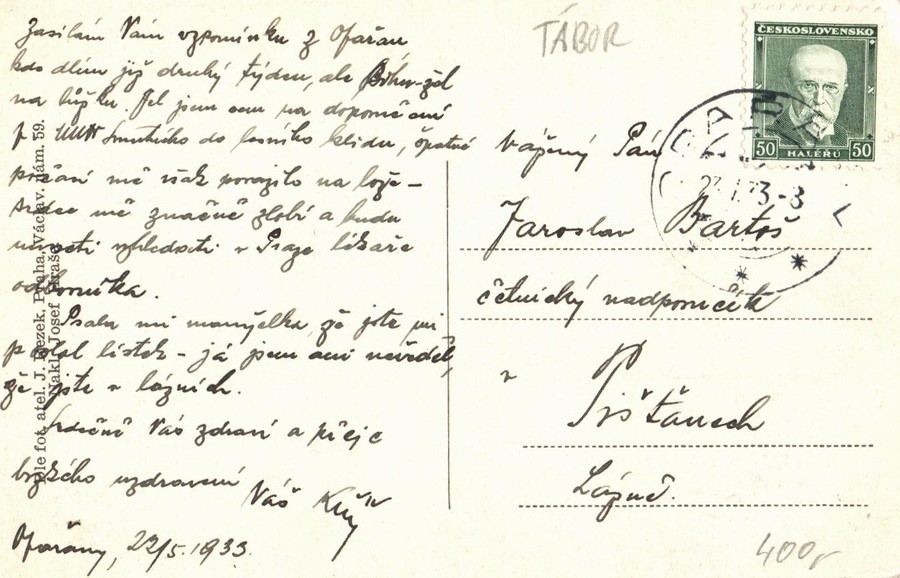 Zasílám Vám vzpomínku z Opařan
kde dlím již druhý týden, ale Bohu-žel
na lůžku. Jel jsem sem na doporučení
p. Smutného do lesního klidu, špatné
počasí mě však porazilo na lože -
srdce mě značně zlobí a budu
museti vyhledati v Praze lékaře
odborníka.
Psala mi manželka, že jste mi
poslal lístek - já jsem ani nevěděl,
že jste v lázních.
Srdečně Vás zdraví a přeje
brzkého uzdravení
Váš
Opařany, 22/5. 1933.
dle fot. atel. J. Dezek, Praha, Václav. nám. 59.
Nakl. Josef
TÁBOR
ČESKOSLOVENSKO
50 HALÉŘŮ 50
Vážený Pán
Jaroslav Bartoš
četnický nadporučík
v
Píšťanech
Lázně.
400,-